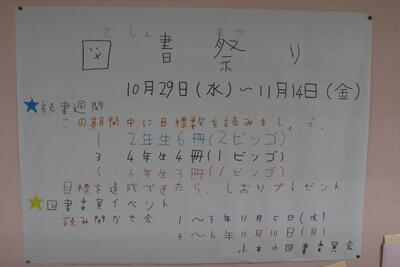 としょ まつ
図書祭り
10月29日(水)~11月14日(金)
★読書週間
この期間中に目標数を読みましょう。
1・2年生6冊(2ビンゴ)
3・4年生4冊(1ビンゴ)
5・6年生3冊(1ビンゴ)
目標を達成できたら、しおりプレゼント
★図書委員イベント
読み聞かせ会 1~3年11月5日(水)
4~6年11月10日(月)
小図書委員会